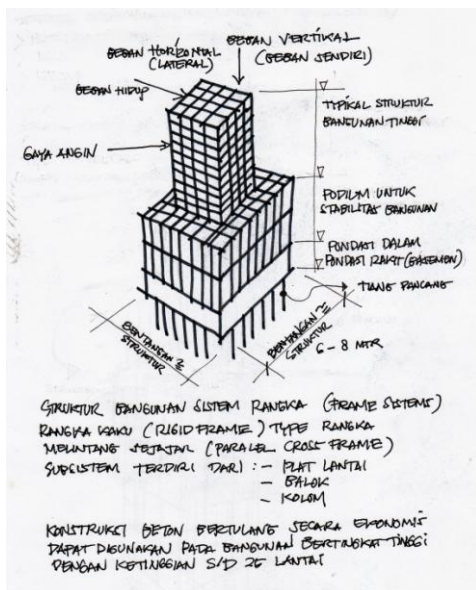 BEBAN HORIZONTAL
(LATERAL)
BEBAN VERTIKAL
(BEBAN SENDIRI)
BEBAN HIDUP
GAYA ANGIN
TYPIKAL STRUKTUR
BANGUNAN TINGGI
PODIUM UNTUK
STABILITAS BANGUNAN
PONDASI DALAM
PONDASI RAKIT (BASEMEN)
TIANG PANCANG
BENTANGAN2
STRUKTUR
BENTANGAN2
STRUKTUR
6 - 8 MTR
STRUKTUR BANGUNAN SISTEM RANGKA (FRAME SISTEMS)
RANGKA KAKU (RIGID FRAME) TYPE RANGKA
MELINTANG SEJAJAR (PARALEL CROSS FRAME)
SUBSISTEM TERDIRI DARI : - PLAT LANTAI
- BALOK
- KOLOM
KONSTRUKSI BETON BERTULANG SECARA EKONOMIS
DAPAT DIGUNAKAN PADA BANGUNAN BERTINGKAT TINGGI
DENGAN KETINGGIAN S/D 25 LANTAI